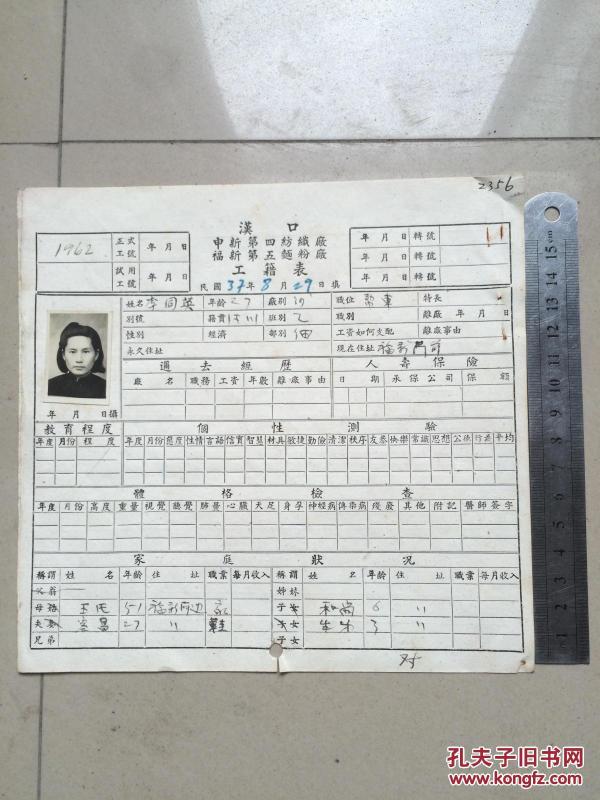 2356
漢口
申新第四紡織廠
福新第五麵粉廠
工籍表
民國 37年8月29日填
1962
正式工號 年 月 日
試用工號 年 月 日
年 月 日 轉號
年 月 日 轉號
年 月 日 轉號
姓名 李同英 年齡 27 廠別 職位 特長
別號 籍貫 班別 乙 職別 離廠 年 月 日
性別 經濟 部別 細 工資如何支配 離廠事由
永久住址 現在住址
年 月 日攝
過去經歷 人壽保險
廠名 職務 工資 年數 離廠事由 日期 承保公司 保額
教育程度 個性測驗
年度 月份 程度 年度 月份 態度 性情 言語 信實 智慧 材具 敏捷 勤儉 清潔 秩序 友泰 快樂 常識 思想 公德 平均
體格檢查
年度 月份 高度 重量 視覺 聽覺 肺量 心臟 天足 身孕 神經病 傳染病 殘廢 其他 附記 醫師簽字
家庭狀況
稱謂 姓名 年齡 住址 職業 每月收入 稱謂 姓名 年齡 住址 職業 每月收入
姊妹
母 王氏 51 子女 和尚 6 〃
夫 27 〃 女 3 〃
兄弟 子女
孔夫子旧书网
www.kongfz.com